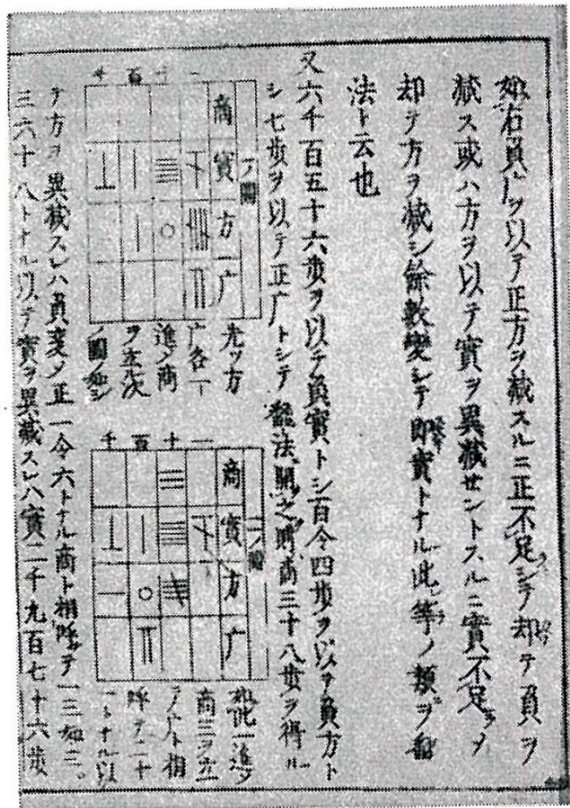 如右負广ヲ以テ正方ヲ減スルニ正不足シテ却テ負ヲ
減ス或ハ方ヲ以テ實ヲ異減セントスルニ實不足シテ
却テ方ヲ減シ餘數變シテ即實トナル此等ノ類ヲ飜
法ト云也
又六千百五十六歩ヲ以テ負實トシ百令四歩ヲ以テ負方ト
シ七歩ヲ以テ正广トシテ飜法開之時商三十八歩ヲ得ル
一ノ圖
商 實 方 广
一
十
百
千
先ツ方
广各一
進メ商
ヲ立次
ノ圖ノ如シ
二ノ圖
商 實 方 广
一
十
百
千
如此一進メ
商三ヲ立
テ广ト相
呼テ二十
一トナル以
テ方ヲ異減スレハ負変メ正一令六トナル商ト相呼テ一三如三
三六十八トナル以テ實ヲ異減スレハ實二千九百七十六歩